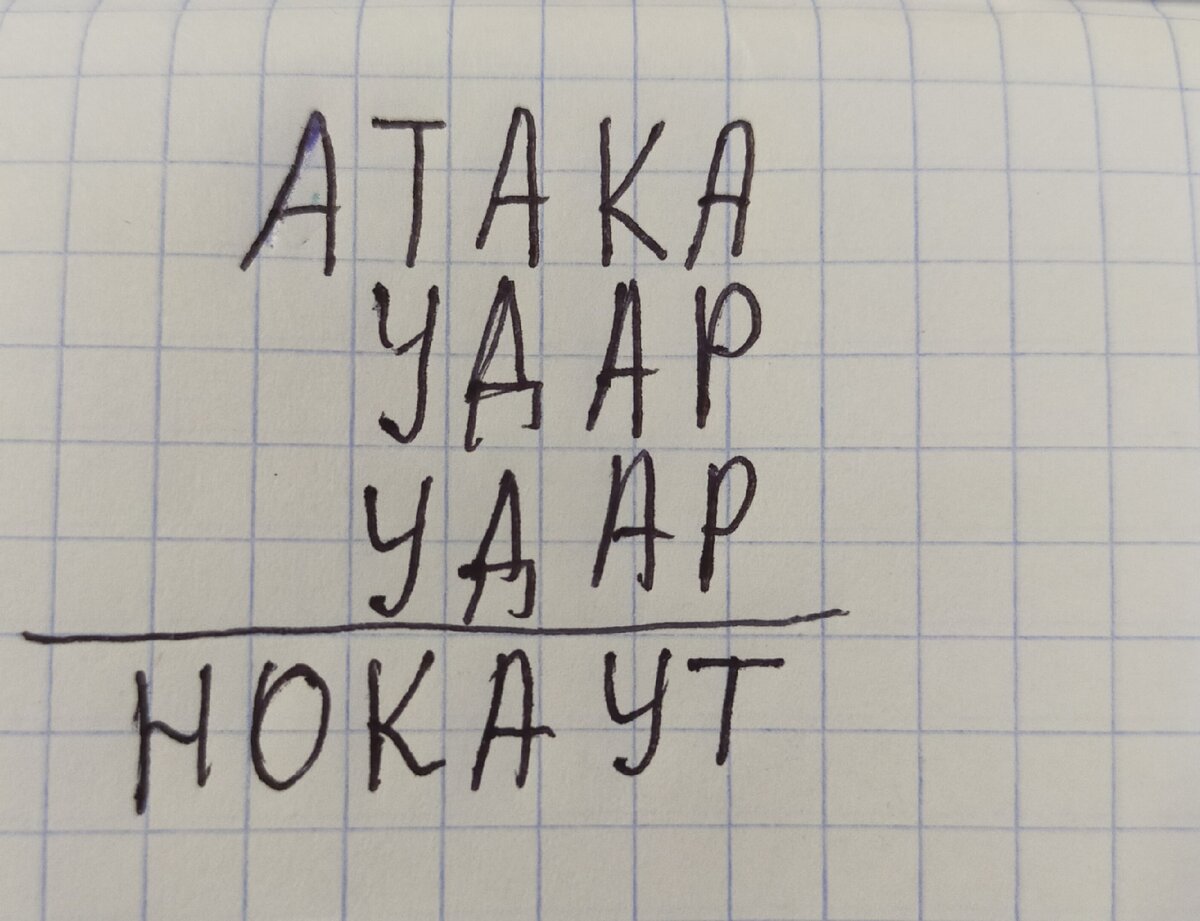 АТАКА
УДАР
УДАР
НОКАУТ